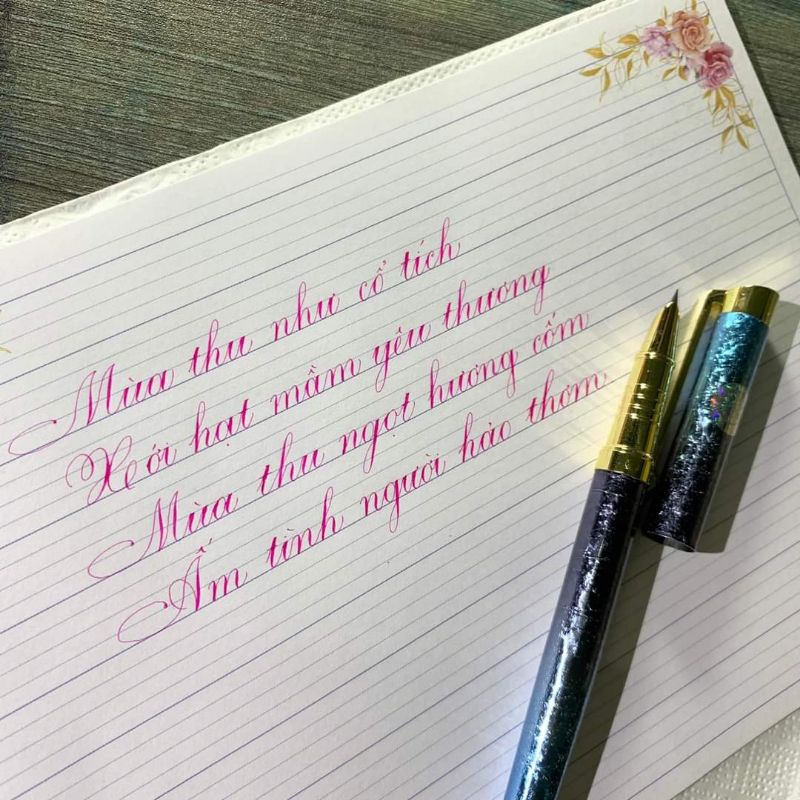 Mùa thu như cổ tích
Xới hạt mầm yêu thương
Mùa thu ngọt hương cốm
Ấm tình người hảo thơm